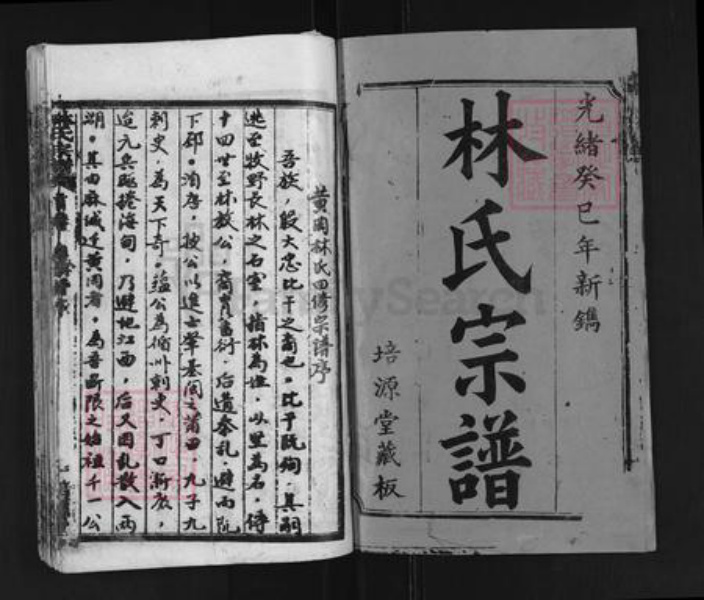 光緒癸巳年新鐫
林氏宗譜
培源堂藏板
黄岡林氏四修宗譜序
吾族，殷大忠比干之裔也。比干既殉，其嗣
逃至牧野長林之石室，指林為姓，以堅為名，傳
十四世至林放公，裔胄蕃衍，后遭秦乱，避而
下邳。洎唐，披公以進士肇基闽之莆田，九子九
刺史，為天下奇。蕴公為邵州刺史，丁口漸蕃，
迨元兵席捲海甸，乃避地江西，后又因乱散入两
湖。其由麻城迁黄岡者，為吾断限之始祖千一公
FamilySearch